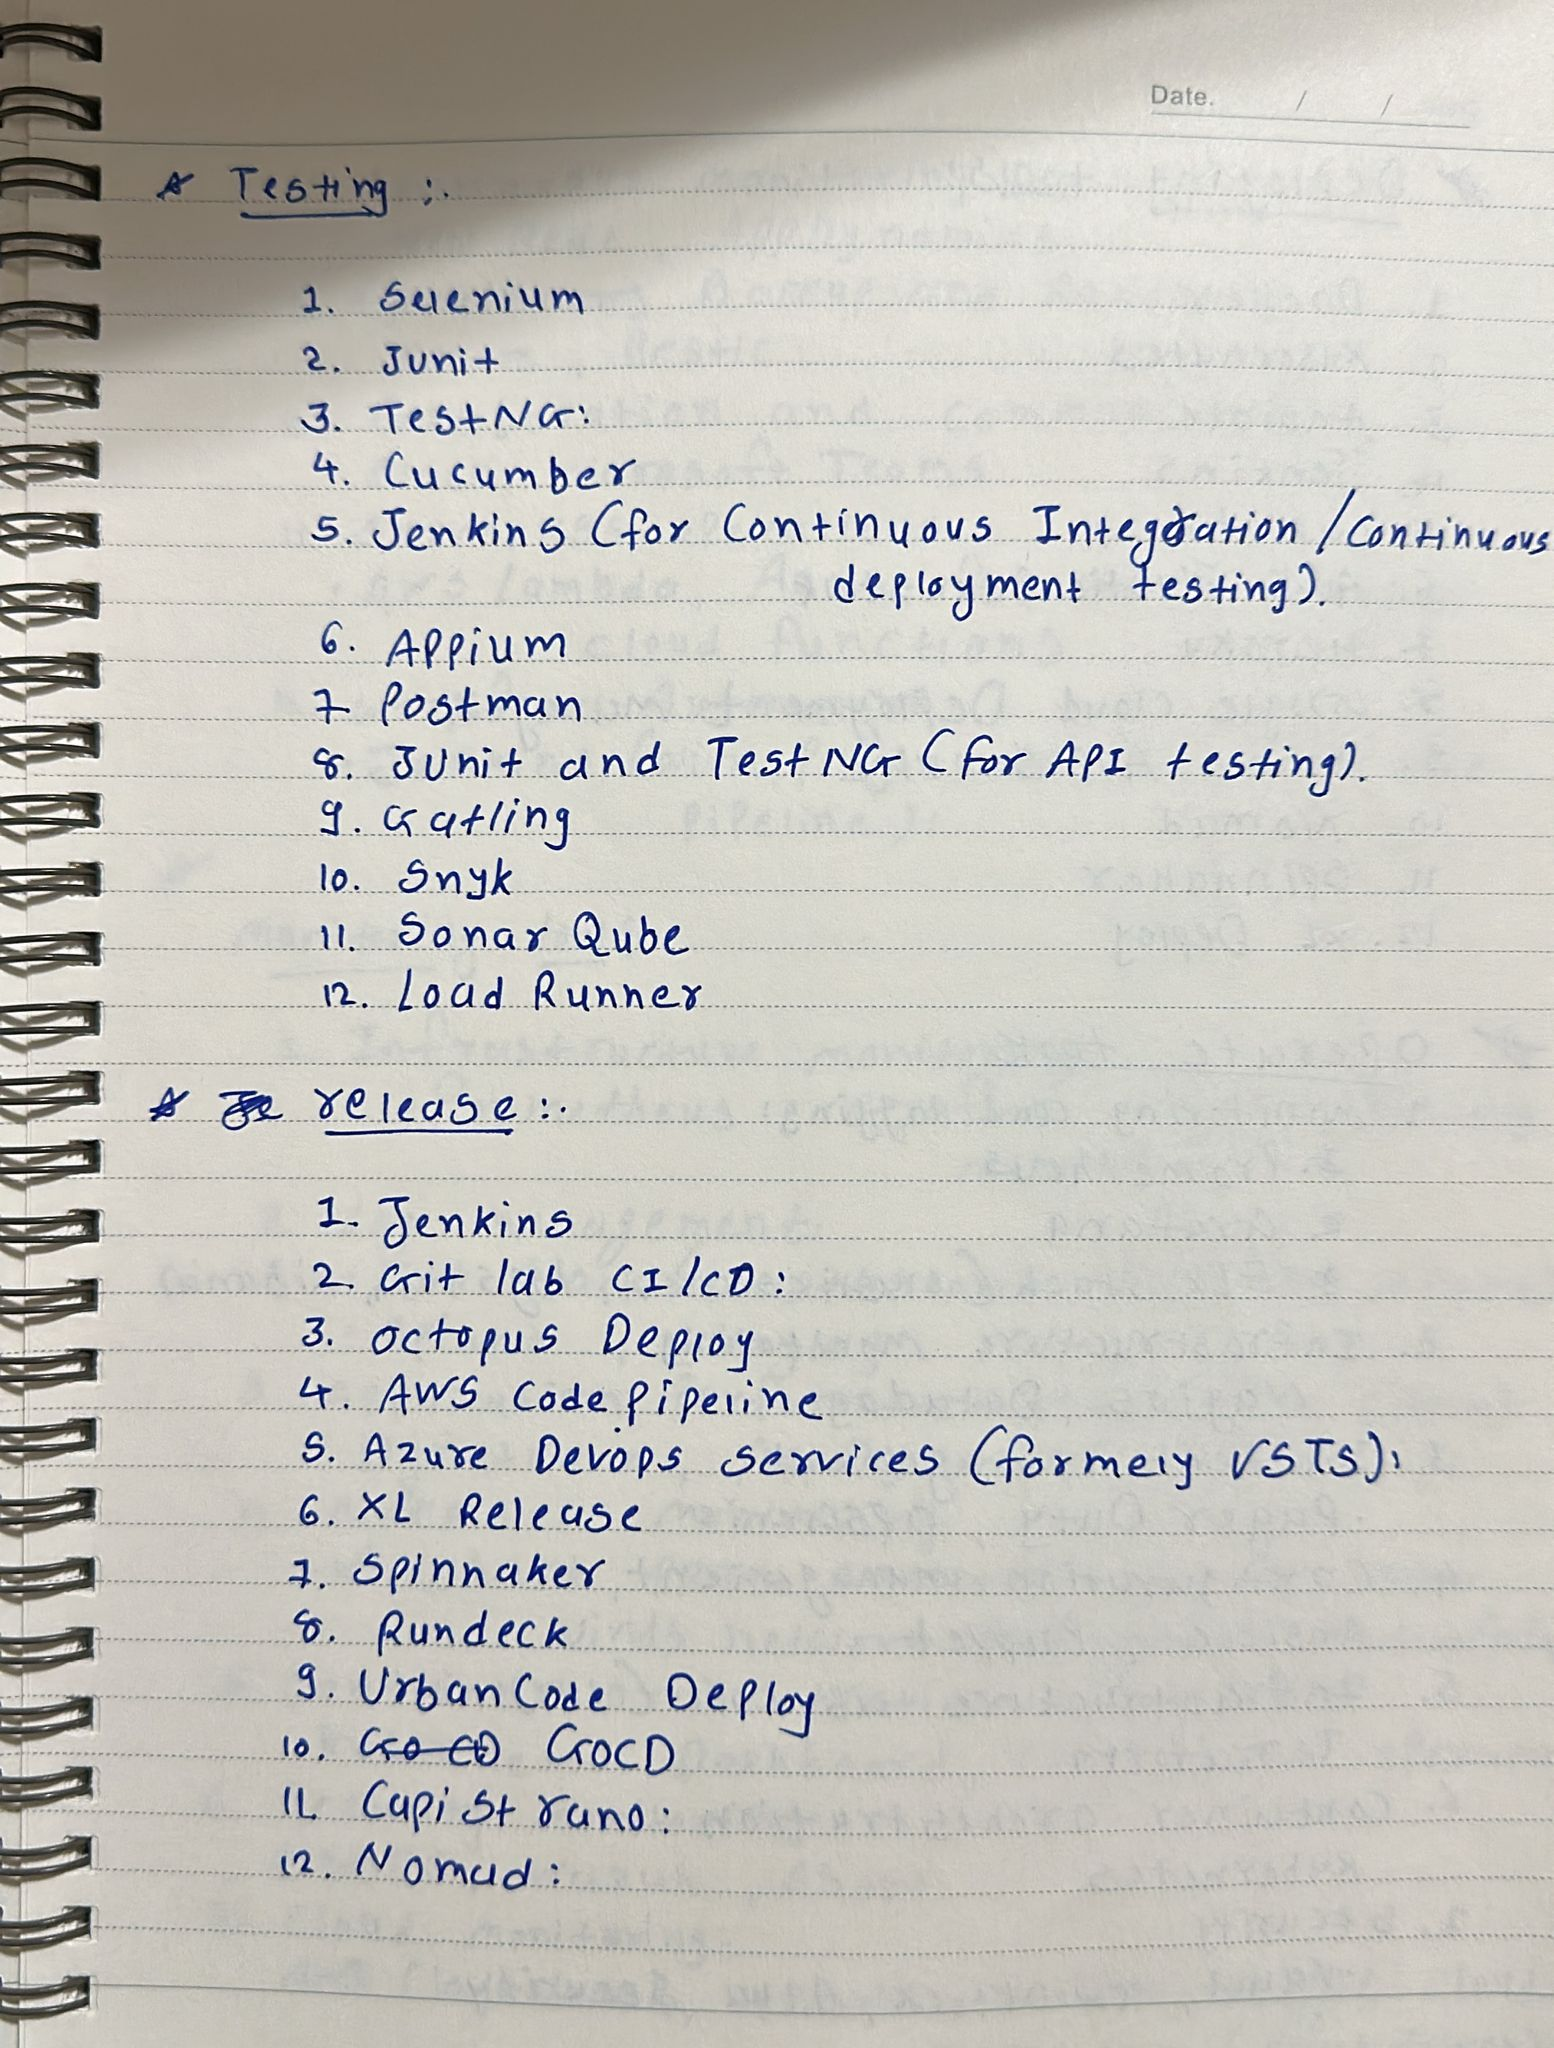 Date. / /
* Testing :.
1. Selenium
2. Junit
3. TestNG:
4. Cucumber
5. Jenkins (for Continuous Integration / Continuous
deployment testing).
6. Appium
7 Postman
8. JUnit and TestNG (for API testing).
9. Gatling
10. Snyk
11. Sonar Qube
12. Load Runner
* release :.
1. Jenkins
2. Git lab CI/CD:
3. octopus Deploy
4. AWS Code Pipeline
5. Azure Devops services (formely VSTS):
6. XL Release
7. Spinnaker
8. Rundeck
9. UrbanCode Deploy
10. Go CD GoCD
11. Capistrano:
12. Nomad: